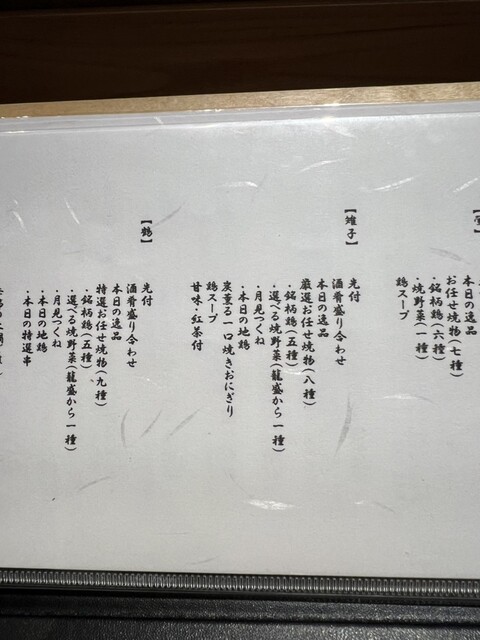 本日の逸品
お任せ焼物(七種)
・銘柄鶏(六種)
・焼野菜(一種)
鶏スープ
【雉子】
先付
酒肴盛り合わせ
本日の逸品
厳選お任せ焼物(八種)
・銘柄鶏(五種)
・選べる焼野菜(籠盛から一種)
・月見つくね
・本日の地鶏
炭薫る一口焼きおにぎり
鶏スープ
甘味・紅茶付
【鶴】
先付
酒肴盛り合わせ
本日の逸品
特選お任せ焼物(九種)
・銘柄鶏(五種)
・選べる焼野菜(籠盛から一種)
・月見つくね
・本日の地鶏
・本日の特選串